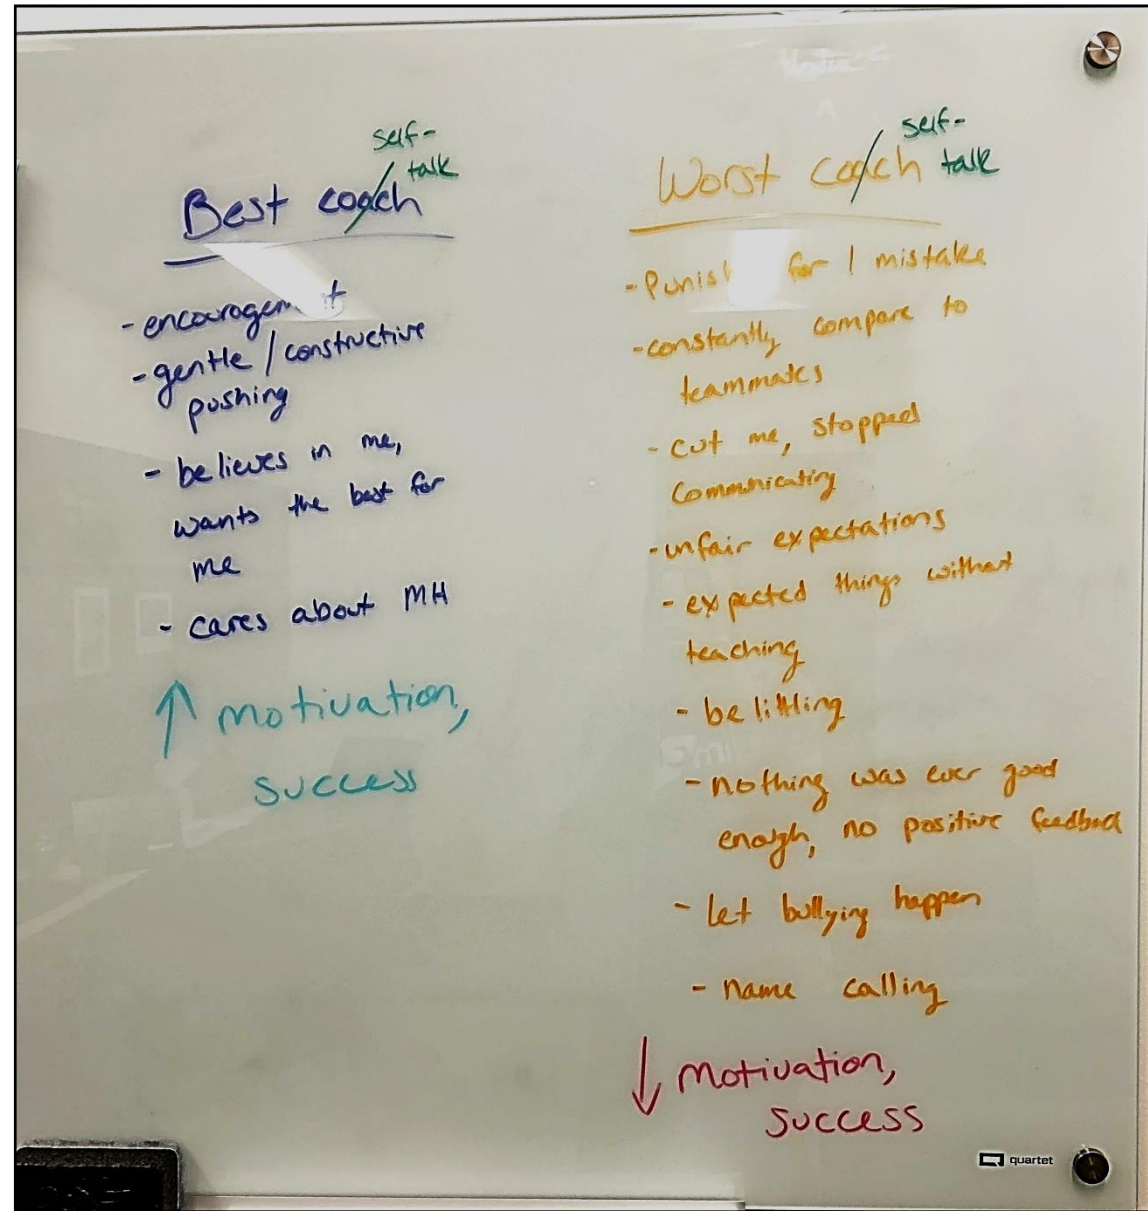 self-
talk
Best coach
- encouragement
- gentle / constructive
pushing
- believes in me,
wants the best for
me
- cares about MH
↑ motivation,
success
self-
talk
Worst coach
- Punish for 1 mistake
- constantly compare to
teammates
- cut me, stopped
communicating
- unfair expectations
- expected things without
teaching
- belittling
- nothing was ever good
enough, no positive feedback
- let bullying happen
- name calling
↓ motivation,
success
quartet